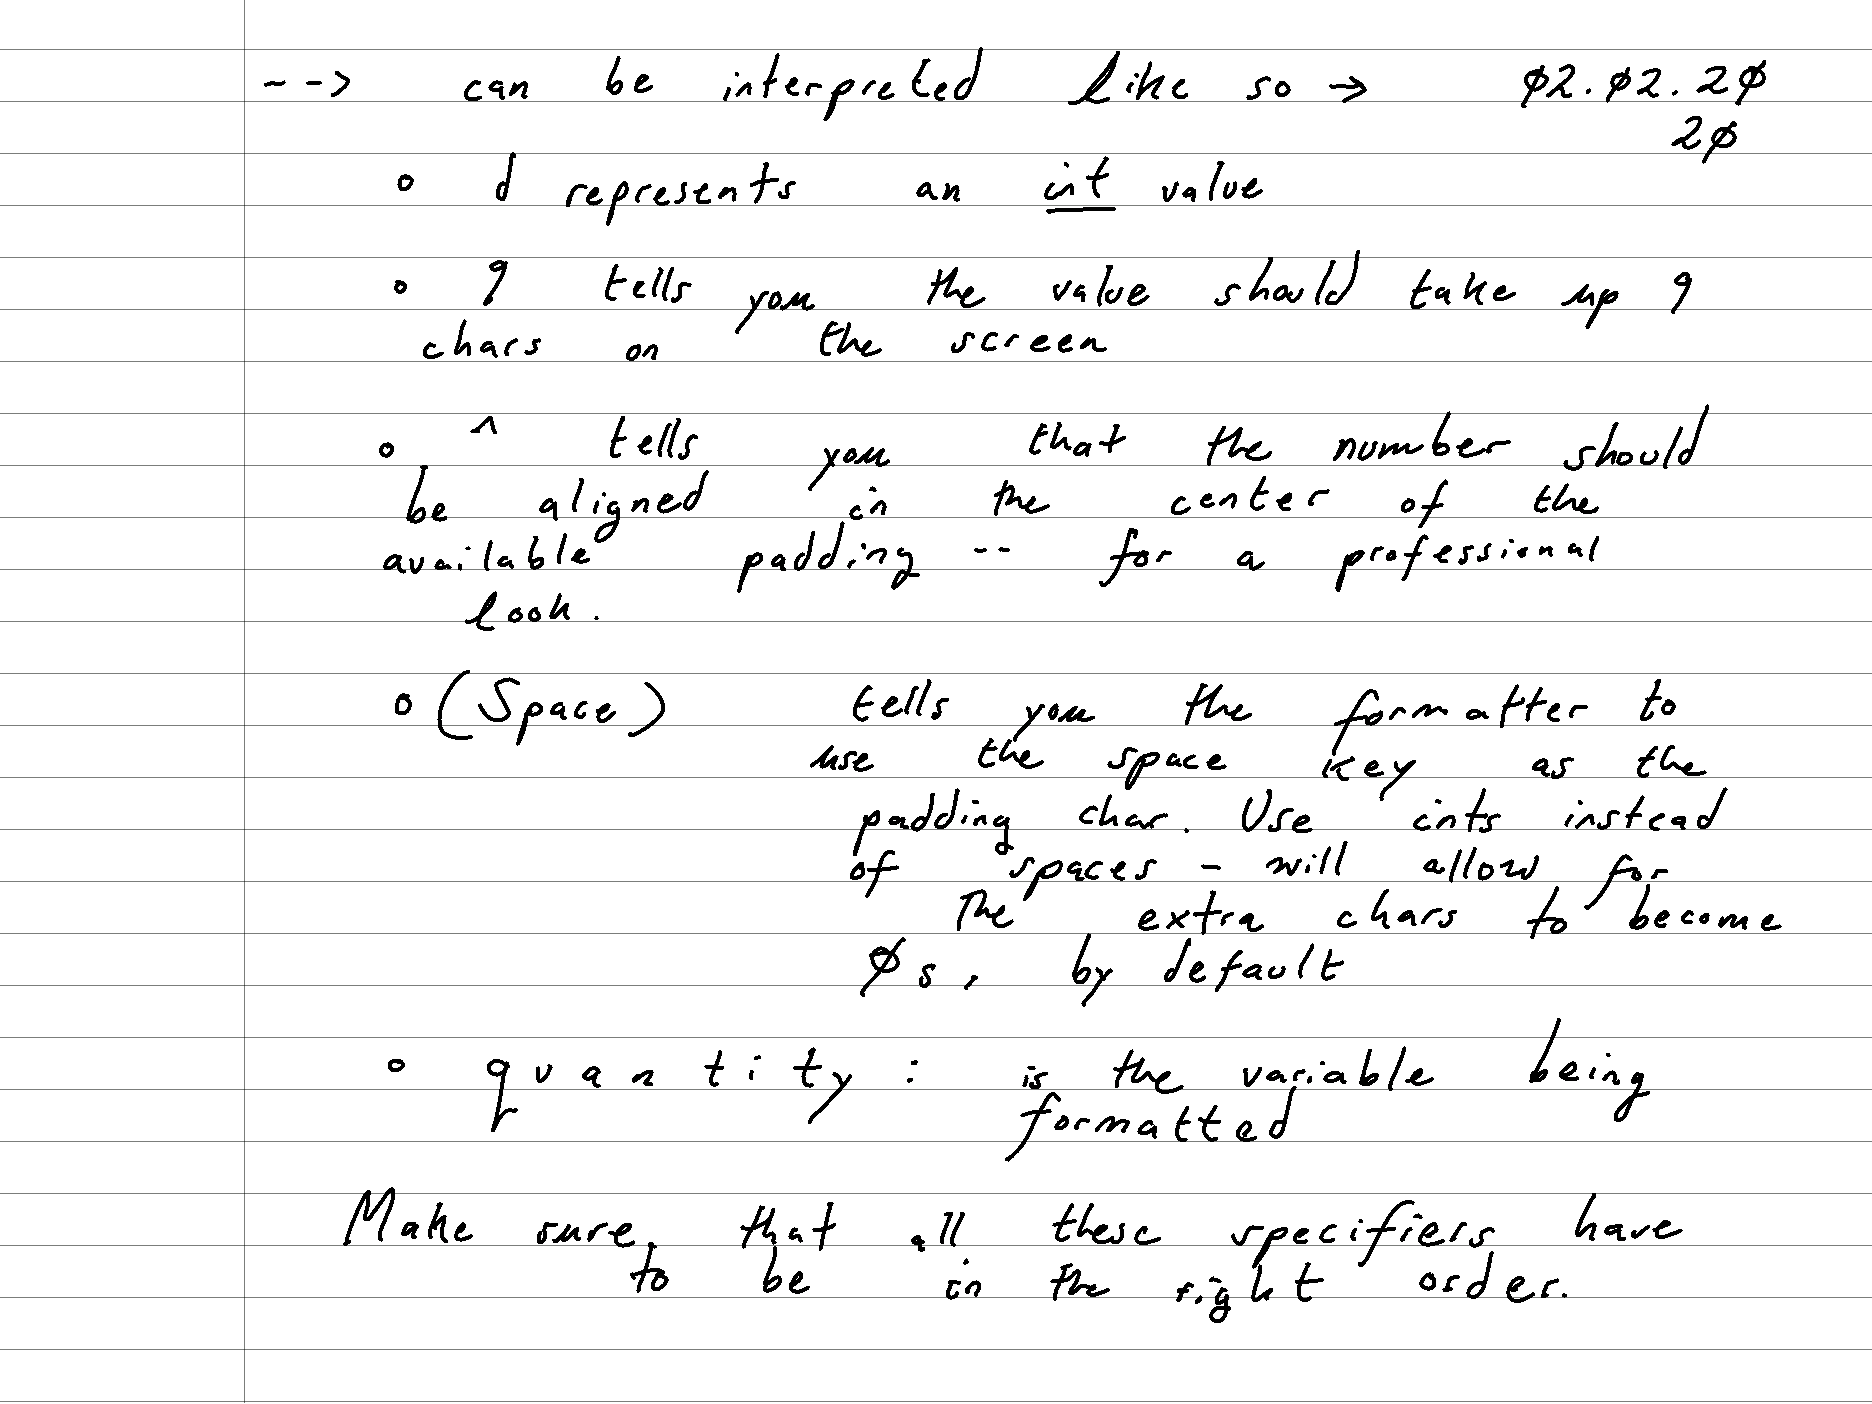 --> can be interpreted like so → 02.02.20
20
o d represents an int value
o 9 tells you the value should take up 9
chars on the screen
o ^ tells you that the number should
be aligned in the center of the
available padding -- for a professional
look.
o (Space) tells you the formatter to
use the space key as the
padding char. Use ints instead
of spaces - will allow for
the extra chars to become
0s, by default
o quantity: is the variable being
formatted
Make sure, that all these specifiers have
to be in the right order.